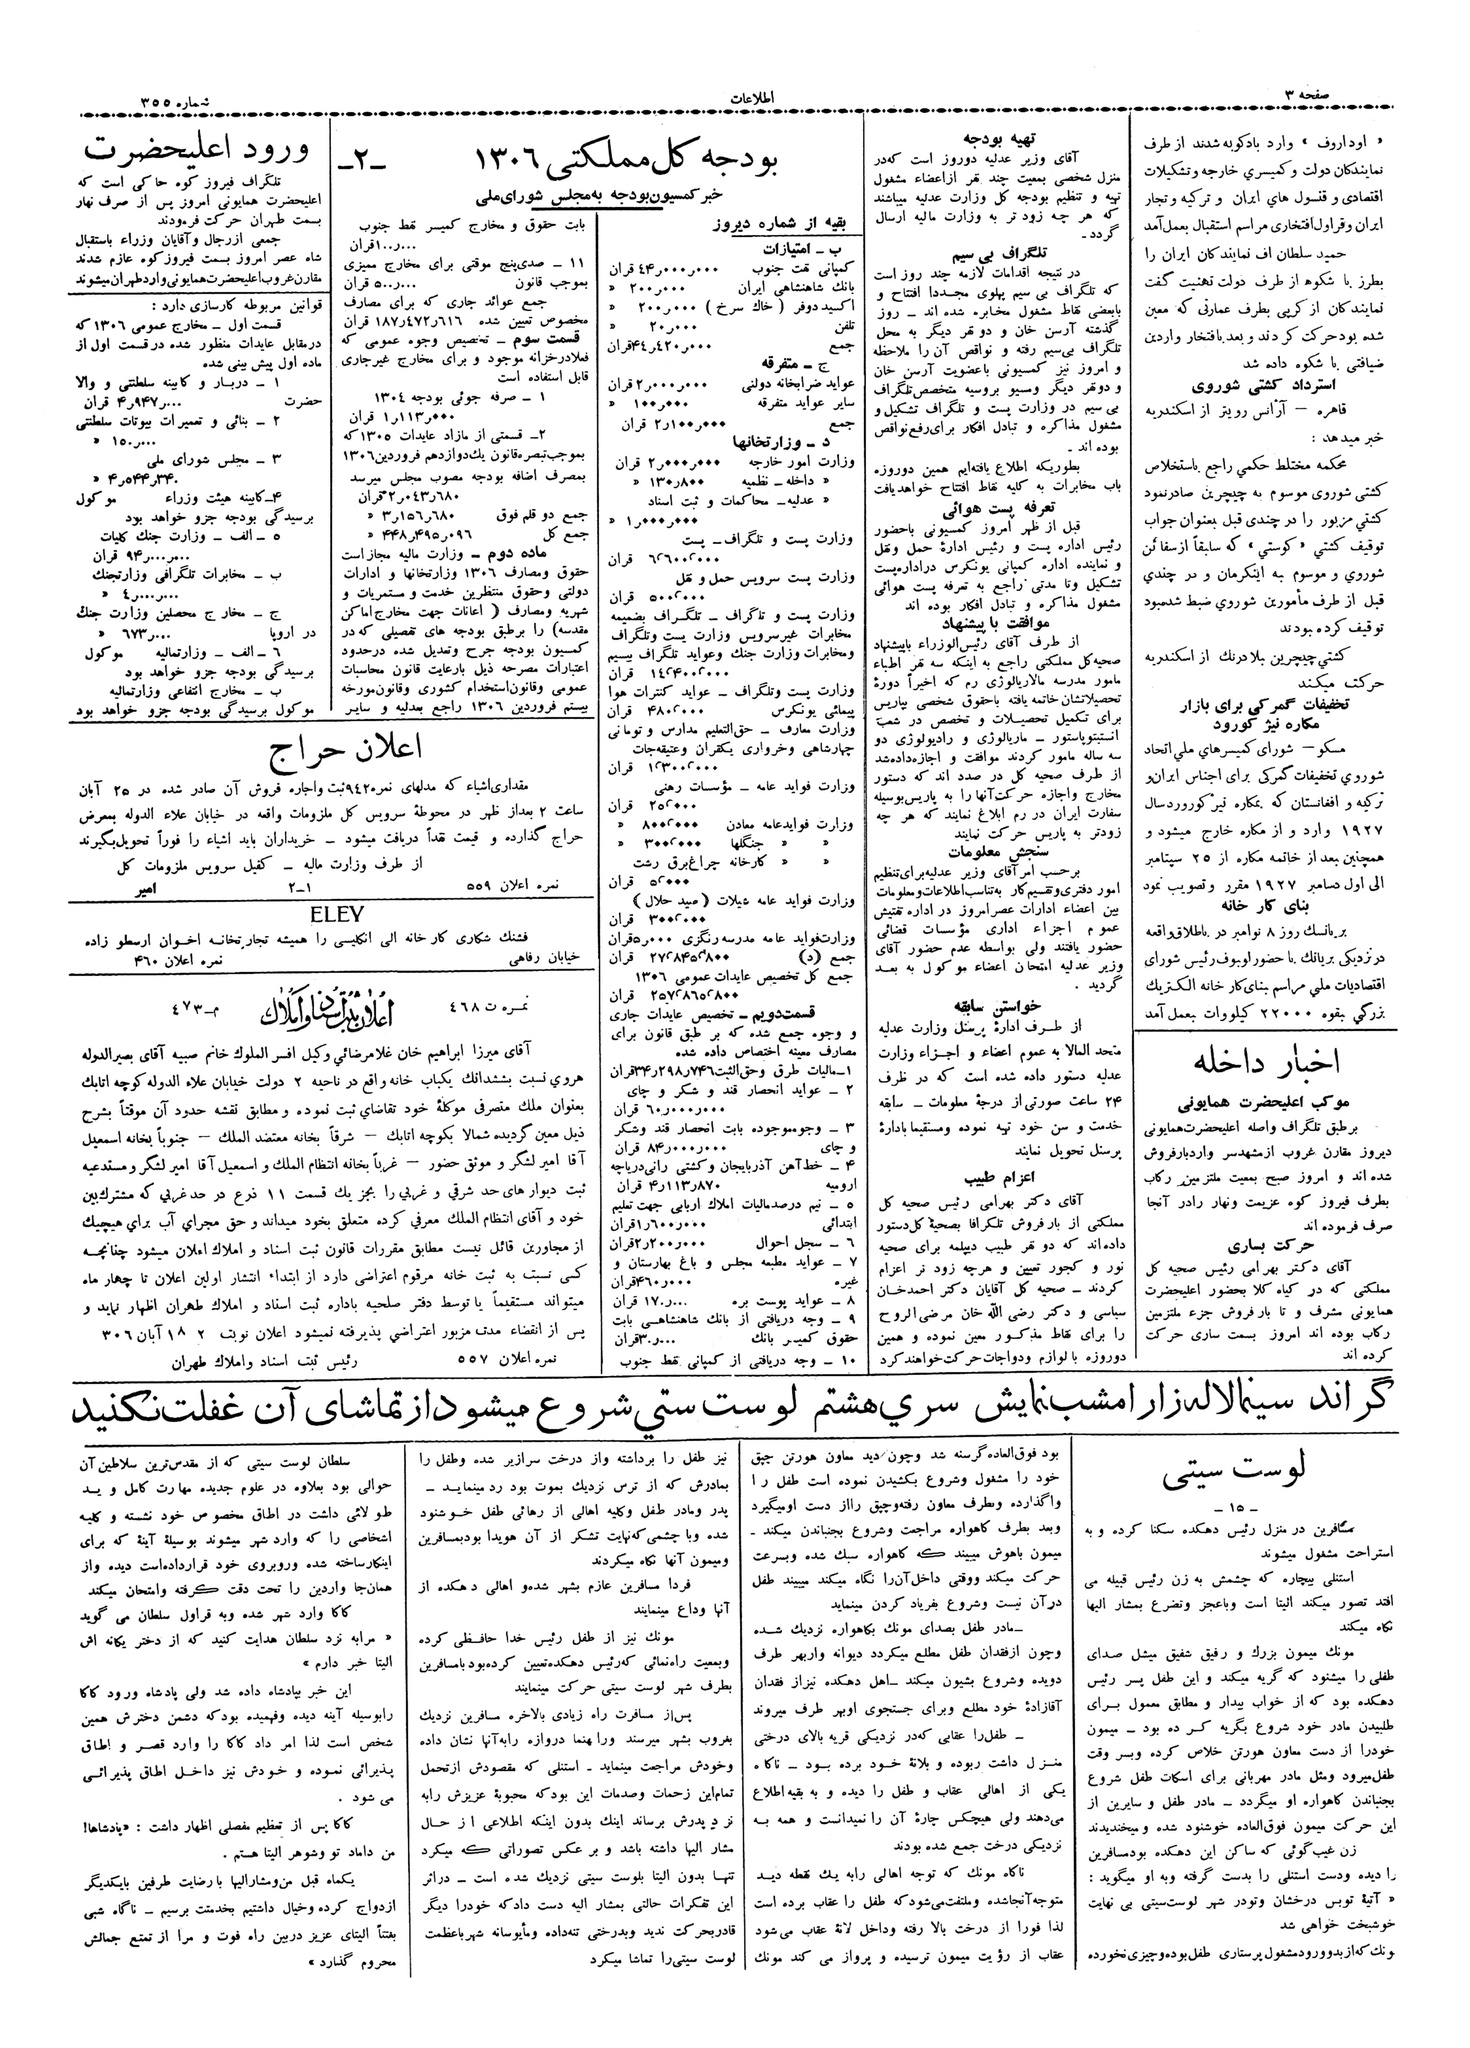 صفحه ۳
اطلاعات
شماره ۳۵۵
« اوداروف » وارد بادکوبه شدند از طرف
نمایندکان دولت و کمیسری خارجه و تشکیلات
اقتصادی و قنسول های ایران و ترکیه و تجار
ایران و قراول افتخاری مراسم استقبال بعمل آمد
حمید سلطان اف نمایندکان ایران را
بطرز با شکوه از طرف دولت تهنیت گفت
نمایندکان از کرپی بطرف عمارتی که معین
شده بود حرکت کردند و بعد بافتخار واردین
ضیافتی با شکوه داده شد
استرداد کشتی شوروی
قاهره – آژانس رویتر از اسکندریه
خبر میدهد :
محکمه مختلط حکمی راجع باستخلاص
کشتی شوروی موسوم به چیچرین صادر نمود
کشتی مزبور را در چندی قبل بعنوان جواب
توقیف کشتی «کوستی» که سابقاً از سفائن
شوروی و موسوم به اینکرمان و در چندی
قبل از طرف مأمورین شوروی ضبط شده بود
توقیف کرده بودند
کشتی چیچرین بلادرنك از اسکندریه
حرکت میکند
تخفیفات گمرکی برای بازار
مکاره نیژنی گورود
مسکو – شورای کمیسرهای ملی اتحاد
شوروی تخفیفات گمرکی برای اجناس ایران و
ترکیه و افغانستان که بمکاره نیژ کورود سال
۱۹۲۷ وارد و از مکاره خارج میشود و
همچنین بعد از خاتمه مکاره از ۲۵ سپتامبر
الی اول دسامبر ۱۹۲۷ مقرر و تصویب نمود
بنای کار خانه
بریانسك روز ۸ نوامبر در باطلاق واقعه
در نزدیکی بریانك با حضور اوبوف رئیس شورای
اقتصادیات ملی مراسم بنای کار خانه الکتریك
بزرگی بقوه ۲۲۰۰۰ کیلووات بعمل آمد
اخبار داخله
موکب اعلیحضرت همایونی
بر طبق تلگراف واصله اعلیحضرت همایونی
دیروز مقارن غروب از مشهدسر وارد بارفروش
شده اند و امروز صبح بمعیت ملتزمین رکاب
بطرف فیروز کوه عزیمت ونهار رادر آنجا
صرف فرموده اند
حرکت بساری
آقای دکتر بهرامی رئیس صحیه کل
مملکتی که در کیاه کلا بحضور اعلیحضرت
همایونی مشرف و تا بارفروش جزء ملتزمین
رکاب بوده اند امروز بسمت ساری حرکت
کرده اند
تهیه بودجه
آقای وزیر عدلیه دوروز است که در
منزل شخصی بمعیت چند نفر از اعضاء مشغول
تهیه و تنظیم بودجه کل وزارت عدلیه میباشند
که هر چه زود تر به وزارت مالیه ارسال
گردد .
تلگراف بی سیم
در نتیجه اقدامات لازمه چند روز است
که تلگراف بی سیم پهلوی مجددا افتتاح و
با بعضی نقاط مشغول مخابره شده اند – روز
گذشته آرسن خان و دو نفر دیگر به محل
تلگراف بی‌سیم رفته و نواقص آن را ملاحظه
و امروز نیز کمسیونی با عضویت آرسن خان
و دو نفر دیگر ومسیو بروسیه متخصص تلگراف
بی سیم در وزارت پست و تلگراف تشکیل و
مشغول مذاکره و تبادل افکار برای رفع نواقص
بوده اند .
بطوریکه اطلاع یافته‌ایم همین دوروزه
باب مخابرات به کلیه نقاط افتتاح خواهد یافت
تعرفه پست هوائی
قبل از ظهر امروز کمسیونی باحضور
رئیس اداره پست و رئیس ادارهٔ حمل ونقل
و نماینده اداره کمپانی یونکرس در اداره پست
تشکیل و تا مدتی راجع به تعرفه پست هوائی
مشغول مذاکره و تبادل افکار بوده اند
موافقت با پیشنهاد
از طرف آقای رئیس‌الوزراء با پیشنهاد
صحیه کل مملکتی راجع به اینکه سه نفر اطباء
مامور مدرسه مالاریالوژی رم که اخیراً دورهٔ
تحصیلاتشان خاتمه یافته باحقوق شخصی بپاریس
برای تکمیل تحصیلات و تخصص در شعب
انستیتوپاستور – ماریالوژی و رادیولوژی دو
سه ساله مامور کردند موافقت و اجازه داده شد
از طرف صحیه کل در صدد اند که دستور
مخارج واجازه حرکت آنها را به پاریس بوسیله
سفارت ایران در رم ابلاغ نمایند که هر چه
زودتر به پاریس حرکت نمایند
سنجش معلومات
بر حسب امر آقای وزیر عدلیه برای تنظیم
امور دفتری وتقسیم کار به تناسب اطلاعات ومعلومات
بین اعضاء ادارات عصر امروز در اداره تفتیش
عموم اجزاء اداری مؤسسات قضائی
حضور یافتند ولی بواسطه عدم حضور آقای
وزیر عدلیه امتحان اعضاء موکول به بعد
گردید .
خواستن سابقه
از طرف ادارهٔ پرسنل وزارت عدلیه
متحد المالا به عموم اعضاء و اجزاء وزارت
عدلیه دستور داده شده است که در ظرف
۲۴ ساعت صورتی از درجهٔ معلومات – سابقه
خدمت و سن خود تهیه نموده ومستقیما بادارهٔ
پرسنل تحویل نمایند
اعزام طبیب
آقای دکتر بهرامی رئیس صحیه کل
مملکتی از بارفروش تلگرافا بصحیهٔ کل دستور
داده اند که دو نفر طبیب دیپلمه برای صحیه
نور و کجور تعیین و هرچه زود تر اعزام
کردند – صحیه کل آقایان دکتر احمدخان
سیاسی و دکتر رضی الله خان مرضی الروح
را برای نقاط مذکور معین نموده و همین
دوروزه با لوازم ودواجات حرکت خواهند کرد
بودجه کل مملکتی ۱۳۰۶ –۲–
خبر کمسیون بودجه به مجلس شورای ملی
بقیه از شماره دیروز
ب – امتیازات
کمپانی نفت جنوب ۴۴ر۰۰۰ر۰۰۰ قران
بانك شاهنشاهی ایران ۲۰۰ر۰۰۰ »
اکسید دوفر ( خاك سرخ ) ۲۰۰ر۰۰۰ »
تلفن ۲۰ر۰۰۰ »
جمع ۴۴ر۴۲۰ر۰۰۰قران
ج – متفرقه
عواید ضرابخانه دولتی ۲ر۰۰۰ر۰۰۰ قران
سایر عواید متفرقه ۱۰۰ر۰۰۰ »
جمع ۲ر۱۰۰ر۰۰۰ قران
د – وزارتخانها
وزارت امور خارجه ۲ر۰۰۰ر۰۰۰ قران
» داخله – نظمیه ۱۳۰ر۸۰۰ »
» عدلیه – محاکمات و ثبت اسناد
۱ر۰۰۰ر۰۰۰ »
وزارت پست و تلگراف – پست
۶٬۶۰۰٬۰۰۰ قران
وزارت پست سرویس حمل و نقل
۵۰۰٬۰۰۰ قران
وزارت پست و تلگراف – تلگراف بضمیمه
مخابرات غیرسرویس وزارت پست وتلگراف
ومخابرات وزارت جنك وعواید تلگراف بیسیم
۱۴٬۴۰۰٬۰۰۰ قران
وزارت پست وتلگراف – عواید کنترات هوا
پیمائی یونکرس ۴۸۰٬۰۰۰ قران
وزارت معارف – حق‌التعلیم مدارس و تومانی
چهارشاهی وخرواری یکقران وعتیقه‌جات
۱٬۳۰۰٬۰۰۰ قران
وزارت فواید عامه – مؤسسات رهنی
۲۵٬۰۰۰ قران
وزارت فواید عامه معادن ۸۰۰٬۰۰۰ »
» » جنگلها ۳۰۰٬۰۰۰ »
» » کارخانه چراغ برق رشت
۵٬۰۰۰ قران
وزارت فواید عامه شیلات ( صید حلال )
۳۰۰٬۰۰۰ قران
وزارت فواید عامه مدرسه رنگرزی ۵ر۰۰۰قران
جمع (د) ۲۷٬۸۴۵٬۸۰۰ قران
جمع کل تخصیص عایدات عمومی ۱۳۰۶
۲۵۷٬۸۶۵٬۸۰۰ قران
قسمت دویم – تخصیص عایدات جاری
و وجوه جمع شده که بر طبق قانون برای
مصارف معینه اختصاص داده شده
۱–مالیات طرق وحق‌الثبت۳۴ر۲۹۸ر۷۴۶قران
۲ – عواید انحصار قند و شکر و چای
۶۰ر۰۰۰ر۰۰۰ قران
۳ – وجوه موجوده بابت انحصار قند وشکر
و چای ۸۴ر۰۰۰ر۰۰۰ قران
۴ – خط آهن آذربایجان وکشتی رانی دریاچه
ارومیه ۴ر۱۱۳ر۸۷۰ قران
۵ – نیم درصد مالیات املاك اربابی جهت تعلیم
ابتدائی ۱ر۶۰۰ر۰۰۰قران
۶ – سجل احوال ۲ر۲۰۰ر۰۰۰قران
۷ – عواید مطبعه مجلس و باغ بهارستان و
غیره ۴۶۰ر۰۰۰قران
۸ – عواید پوست بره ۱۷۰ر۰۰۰ قران
۹ – وجه دریافتی از بانك شاهنشاهی بابت
حقوق کمیسر بانك ۳۰ر۰۰۰قران
۱۰ – وجه دریافتی از کمپانی نفط جنوب
بابت حقوق و مخارج کمیسر نفط جنوب
۱۰۰ر۰۰۰قران
۱۱ – صدی‌پنج موقتی برای مخارج ممیزی
بموجب قانون ۵۰۰ر۰۰۰ قران
جمع عوائد جاری که برای مصارف
مخصوص تعیین شده ۱۸۷ر۴۷۲ر۶۱۶ قران
قسمت سوم – تخصیص وجوه عمومی که
فعلا در خزانه موجود و برای مخارج غیر جاری
قابل استفاده است
۱ – صرفه جوئی بودجه ۱۳۰۴
۱ر۱۱۳ر۰۰۰ قران
۲– قسمتی از مازاد عایدات ۱۳۰۵ که
بموجب تبصره قانون یك دوازدهم فروردین ۱۳۰۶
بمصرف اضافه بودجه مصوب مجلس میرسد
۲ر۰۴۳ر۶۸۰قران
جمع دو قلم فوق ۳ر۱۵۶ر۶۸۰ »
جمع کل ۴۴۸ر۴۹۵ر۰۹۶ »
ماده دوم – وزارت مالیه مجاز است
حقوق ومصارف ۱۳۰۶ وزارتخانها و ادارات
دولتی وحقوق منتظرین خدمت و مستمریات و
شهریه ومصارف ( اعانات جهت مخارج اماکن
مقدسه) را برطبق بودجه های تفصیلی که در
کمسیون بودجه جرح وتعدیل شده درحدود
اعتبارات مصرحه ذیل بارعایت قانون محاسبات
عمومی وقانون استخدام کشوری وقانون مورخه
بیستم فروردین ۱۳۰۶ راجع بعدلیه و سایر
ورود اعلیحضرت
تلگراف فیروز کوه حاکی است که
اعلیحضرت همایونی امروز پس از صرف نهار
بسمت طهران حرکت فرمودند
جمعی از رجال وآقایان وزراء باستقبال
شاه عصر امروز بسمت فیروز کوه عازم شدند
مقارن غروب اعلیحضرت همایونی وارد طهران میشوند
قوانین مربوطه کارسازی دارد :
قسمت اول – مخارج عمومی ۱۳۰۶ که
در مقابل عایدات منظور شده در قسمت اول از
ماده اول پیش بینی شده
۱ – دربار و کابینه سلطنتی و والا
حضرت ۴ر۹۴۷ر۰۰۰ قران
۲ – بنائی و تعمیرات بیوتات سلطنتی
۱۵۰ر۰۰۰ »
۳ – مجلس شورای ملی
۴ر۵۴۴ر۳۴۰ »
۴–کابینه هیئت وزراء موکول
برسیدگی بودجه جزو خواهد بود
۵ – الف – وزارت جنك کلیات
۹۴ر۰۰۰ر۰۰۰ قران
ب – مخابرات تلگرافی وزارتجنك
۴ر۰۰۰ر۰۰۰ »
ج – مخارج محصلین وزارت جنك
در اروپا ۶۷۳ر۰۰۰ »
۶ – الف – وزارت مالیه موکول
برسیدگی بودجه جزو خواهد بود
ب – مخارج انتفاعی وزارتمالیه
موکول برسیدگی بودجه جزو خواهد بود
اعلان حراج
مقداری اشیاء که مدلهای نمره ۹۴۲ ثبت واجازه فروش آن صادر شده در ۲۵ آبان
ساعت ۲ بعد از ظهر در محوطهٔ سرویس کل ملزومات واقعه در خیابان علاء الدوله بمعرض
حراج گذارده و قیمت نقداً دریافت میشود – خریداران باید اشیاء را فوراً تحویل بگیرند
از طرف وزارت مالیه – کفیل سرویس ملزومات کل
نمره اعلان ۵۵۹ ۱–۲ امیر
ELEY
فشنك شکاری کار خانه الی انکلیسی را همیشه تجارتخانه اخوان ارسطو زاده
خیابان رفاهی نمره اعلان ۴۶۰
نمره ت ۴۶۸ اعلان ثبت اسناد و املاك م–۴۷۳
آقای میرزا ابراهیم خان غلامرضائی وکیل افسر الملوك خانم صبیه آقای بصیرالدوله
هروی نسبت بششدانك یکباب خانه واقع در ناحیه ۲ دولت خیابان علاء الدوله کوچه اتابك
بعنوان ملك متصرفی موکلهٔ خود تقاضای ثبت نموده و مطابق نقشه حدود آن موقتاً بشرح
ذیل معین گردیده شمالا بکوچه اتابك – شرقاً بخانه معتضد الملك – جنوباً بخانه اسمعیل
آقا امیر لشگر و موثق حضور – غرباً بخانه انتظام الملك و اسمعیل آقا امیر لشگر و مستدعیه
ثبت دیوار های حد شرقی و غربی را بجز یك قسمت ۱۱ ذرع در حد غربی که مشترك بین
خود و آقای انتظام الملك معرفی کرده متعلق بخود میداند و حق مجرای آب برای هیچیك
از مجاورین قائل نیست مطابق مقررات قانون ثبت اسناد و املاك اعلان میشود چنانچه
کسی نسبت به ثبت خانه مرقوم اعتراضی دارد از ابتداء انتشار اولین اعلان تا چهار ماه
میتواند مستقیماً یا توسط دفتر صلحیه باداره ثبت اسناد و املاك طهران اظهار نماید و
پس از انقضاء مدت مزبور اعتراضی پذیرفته نمیشود اعلان نوبت ۲ ۱۸ آبان ۳۰۶
نمره اعلان ۵۵۷ رئیس ثبت اسناد واملاك طهران
گراند سینما لاله زار امشب نمایش سری هشتم لوست ستی شروع میشود از تماشای آن غفلت نکنید
لوست سیتی
– ۱۵ –
مسافرین در منزل رئیس دهکده سکنا کرده و به
استراحت مشغول میشوند
استنلی بیچاره که چشمش به زن رئیس قبیله می
افتد تصور میکند الیتا است وباعجز وتضرع بمشار الیها
نگاه میکند
مونك میمون بزرك و رفیق شفیق میشل صدای
طفلی را میشنود که گریه میکند و این طفل پسر رئیس
دهکده بود که از خواب بیدار و مطابق معمول برای
طلبیدن مادر خود شروع بگریه کرده بود – میمون
خودرا از دست معاون هورتن خلاص کرده وبسر وقت
طفل میرود ومثل مادر مهربانی برای اسکات طفل شروع
بجنباندن کاهواره او میگردد – مادر طفل و سایرین از
این حرکت میمون فوق‌العاده خوشنود شده و میخندیدند
زن غیب‌گوئی که ساکن این دهکده بود مسافرین
را دیده ودست استنلی را بدست گرفته وبه او میگوید :
« آتیهٔ توبس درخشان وتودر شهر لوست‌سیتی بی نهایت
خوشبخت خواهی شد
مونك که از بدو ورود مشغول پرستاری طفل بوده وچیزی نخورده
بود فوق‌العاده گرسنه شد وچون دید معاون هورتن چپق
خود را مشغول وشروع بکشیدن نموده است طفل را
واگذارده وبطرف معاون رفته وچپق رااز دست اومیگیرد
وبعد بطرف کاهواره مراجعت وشروع بجنباندن میکند .
میمون باهوش میبیند که کاهواره سبك شده وبسرعت
حرکت میکند ووقتی داخل آن را نگاه میکند میبیند طفل
در آن نیست وشروع بفریاد کردن مینماید
–مادر طفل بصدای مونك بکاهواره نزدیك شده
وچون از فقدان طفل مطلع میگردد دیوانه وار بهر طرف
دویده وشروع بشیون میکند –اهل دهکده نیز از فقدان
آقازادهٔ خود مطلع وبرای جستجوی او بهر طرف میروند
– طفل را عقابی که در نزدیکی قریه بالای درختی
منزل داشت ربوده و بلانهٔ خود برده بود – ناگاه
یکی از اهالی عقاب و طفل را دیده و به بقیه اطلاع
می‌دهند ولی هیچکس چارهٔ آن را نمیدانست و همه به
نزدیکی درخت جمع شده بودند
ناگاه مونك که توجه اهالی رابه یك نقطه دید
متوجه آنجاشده وملتفت می‌شود که طفل را عقاب برده است
لذا فورا از درخت بالا رفته وداخل لانهٔ عقاب می‌شود
عقاب از رؤیت میمون ترسیده و پرواز می کند مونك
نیز طفل را برداشته واز درخت سرازیر شده وطفل را
بمادرش که از ترس نزدیك بموت بود رد مینماید –
پدر ومادر طفل وکلیه اهالی از رهائی طفل خوشنود
شده وبا چشمی که نهایت تشکر از آن هویدا بود بمسافرین
ومیمون آنها نگاه میکردند
فردا مسافرین عازم بشهر شده و اهالی دهکده از
آنها وداع مینمایند
مونك نیز از طفل رئیس خدا حافظی کرده
وبمعیت راه‌نمائی که رئیس دهکده تعیین کرده بود بامسافرین
بطرف شهر لوست سیتی حرکت مینمایند
پس از مسافرت راه زیادی بالاخره مسافرین نزدیك
بغروب بشهر میرسند وراهنما دروازه رابه آنها نشان داده
وخودش مراجعت مینماید . استنلی که مقصودش از تحمل
تمام این زحمات وصدمات این بود که محبوبهٔ عزیزش رابه
نزد پدرش برساند اینك بدون اینکه اطلاعی از حال
مشار الیها داشته باشد و بر عکس تصوراتی که میکرد
تنها بدون الیتا بلوست سیتی نزدیك شده است – دراثر
این تفکرات حالتی بمشار الیه دست داد که خودرا دیگر
قادر بحرکت ندید وبدرختی تنه داده و مأیوسانه شهر باعظمت
لوست سیتی را تماشا میکرد
سلطان لوست سیتی که از مقدس‌ترین سلاطین آن
حوالی بود بعلاوه در علوم جدیده مهارت کامل و ید
طولائی داشت در اطاق مخصوص خود نشسته و کلیه
اشخاصی را که وارد شهر میشوند بوسیلهٔ آینهٔ که برای
اینکار ساخته شده وروبروی خود قرارداده است دیده واز
همان‌جا واردین را تحت دقت گرفته وامتحان میکند
کاکا وارد شهر شده وبه قراول سلطان می گوید
« مرابه نزد سلطان هدایت کنید که از دختر یگانه اش
الیتا خبر دارم »
این خبر بپادشاه داده شد ولی پادشاه ورود کاکا
رابوسیله آینه دیده وفهمیده بود که دشمن دخترش همین
شخص است لذا امر داد کاکا را وارد قصر و اطاق
پذیرائی نموده و خودش نیز داخل اطاق پذیرائی
می شود .
کاکا پس از تعظیم مفصلی اظهار داشت : «پادشاها!
من داماد تو وشوهر الیتا هستم .
یکماه قبل من ومشارالیها با رضایت طرفین بایکدیگر
ازدواج کرده وخیال داشتیم بخدمتت برسیم – ناگاه شبی
بغتتاً الیتای عزیز دربین راه فوت و مرا از تمتع جمالش
محروم گذارد »